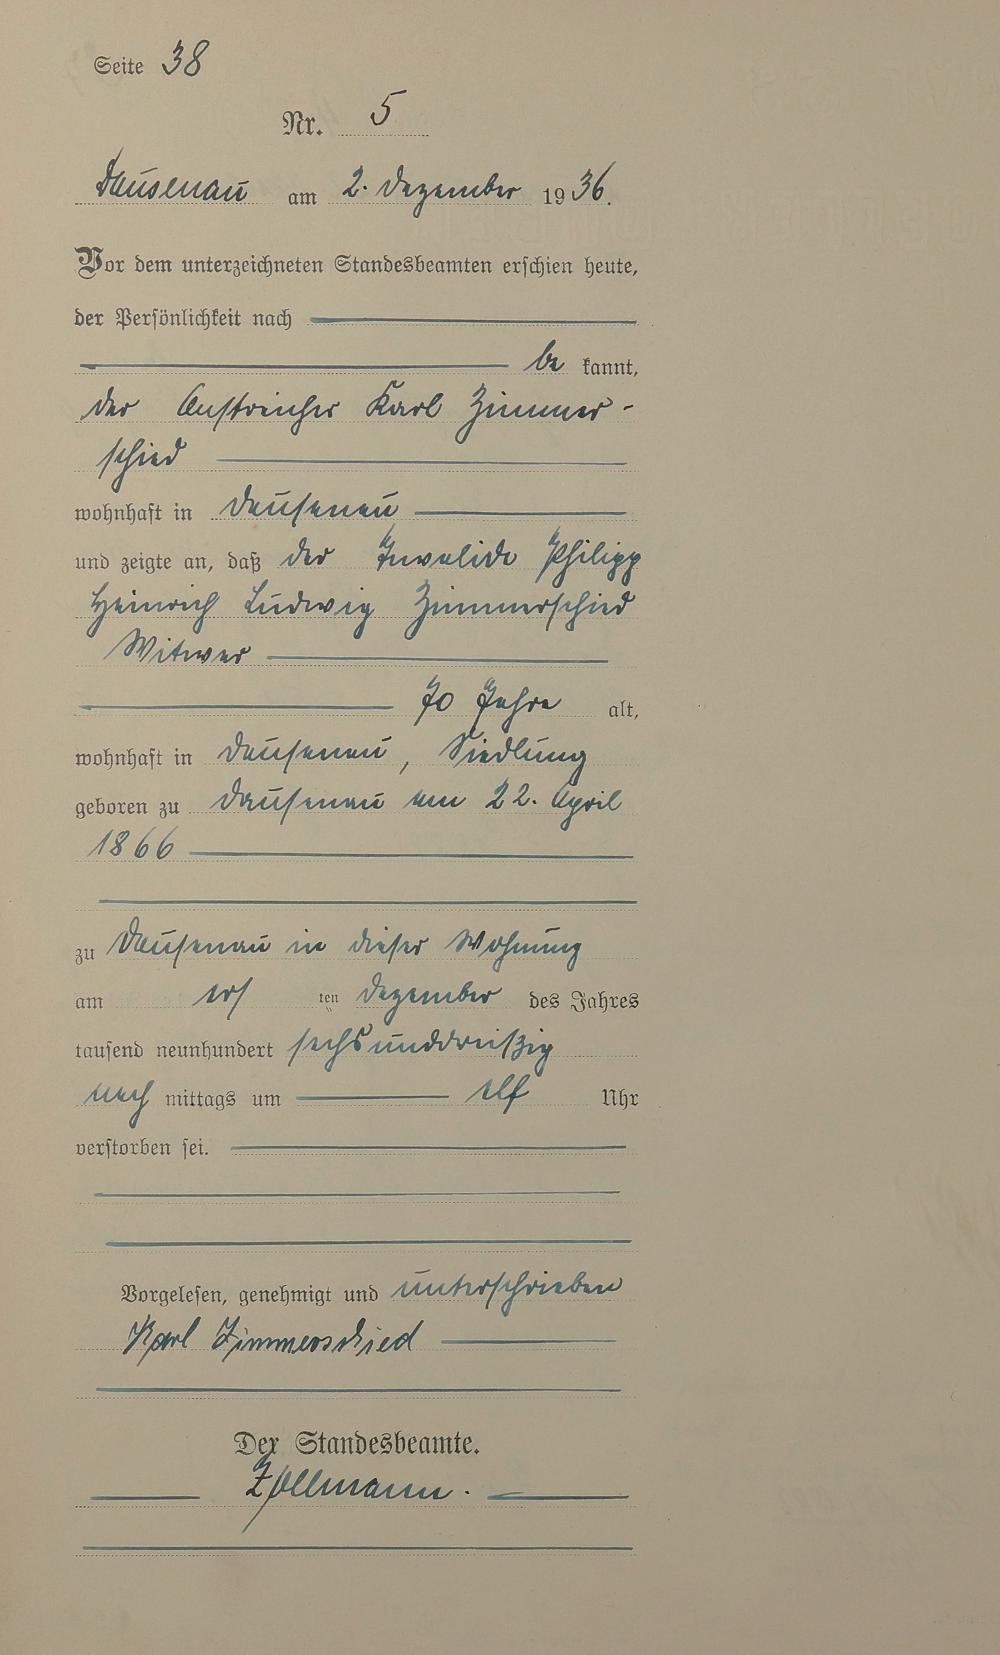 Seite 38
Nr. 5
Dausenau am 2. Dezember 1936.
Vor dem unterzeichneten Standesbeamten erschien heute,
der Persönlichkeit nach
be kannt,
der Anstreicher Karl Zimmer-
schied
wohnhaft in Dausenau
und zeigte an, daß der Invalide Philipp
Heinrich Ludwig Zimmerschied
Witwer
70 Jahre alt,
wohnhaft in Dausenau, Siedlung
geboren zu Dausenau am 22. April
1866
zu Dausenau in dieser Wohnung
am ers ten Dezember des Jahres
tausend neunhundert sechsunddreißig
nach mittags um elf Uhr
verstorben sei.
Vorgelesen, genehmigt und unterschrieben
Karl Zimmerschied
Der Standesbeamte.
Zollmann.